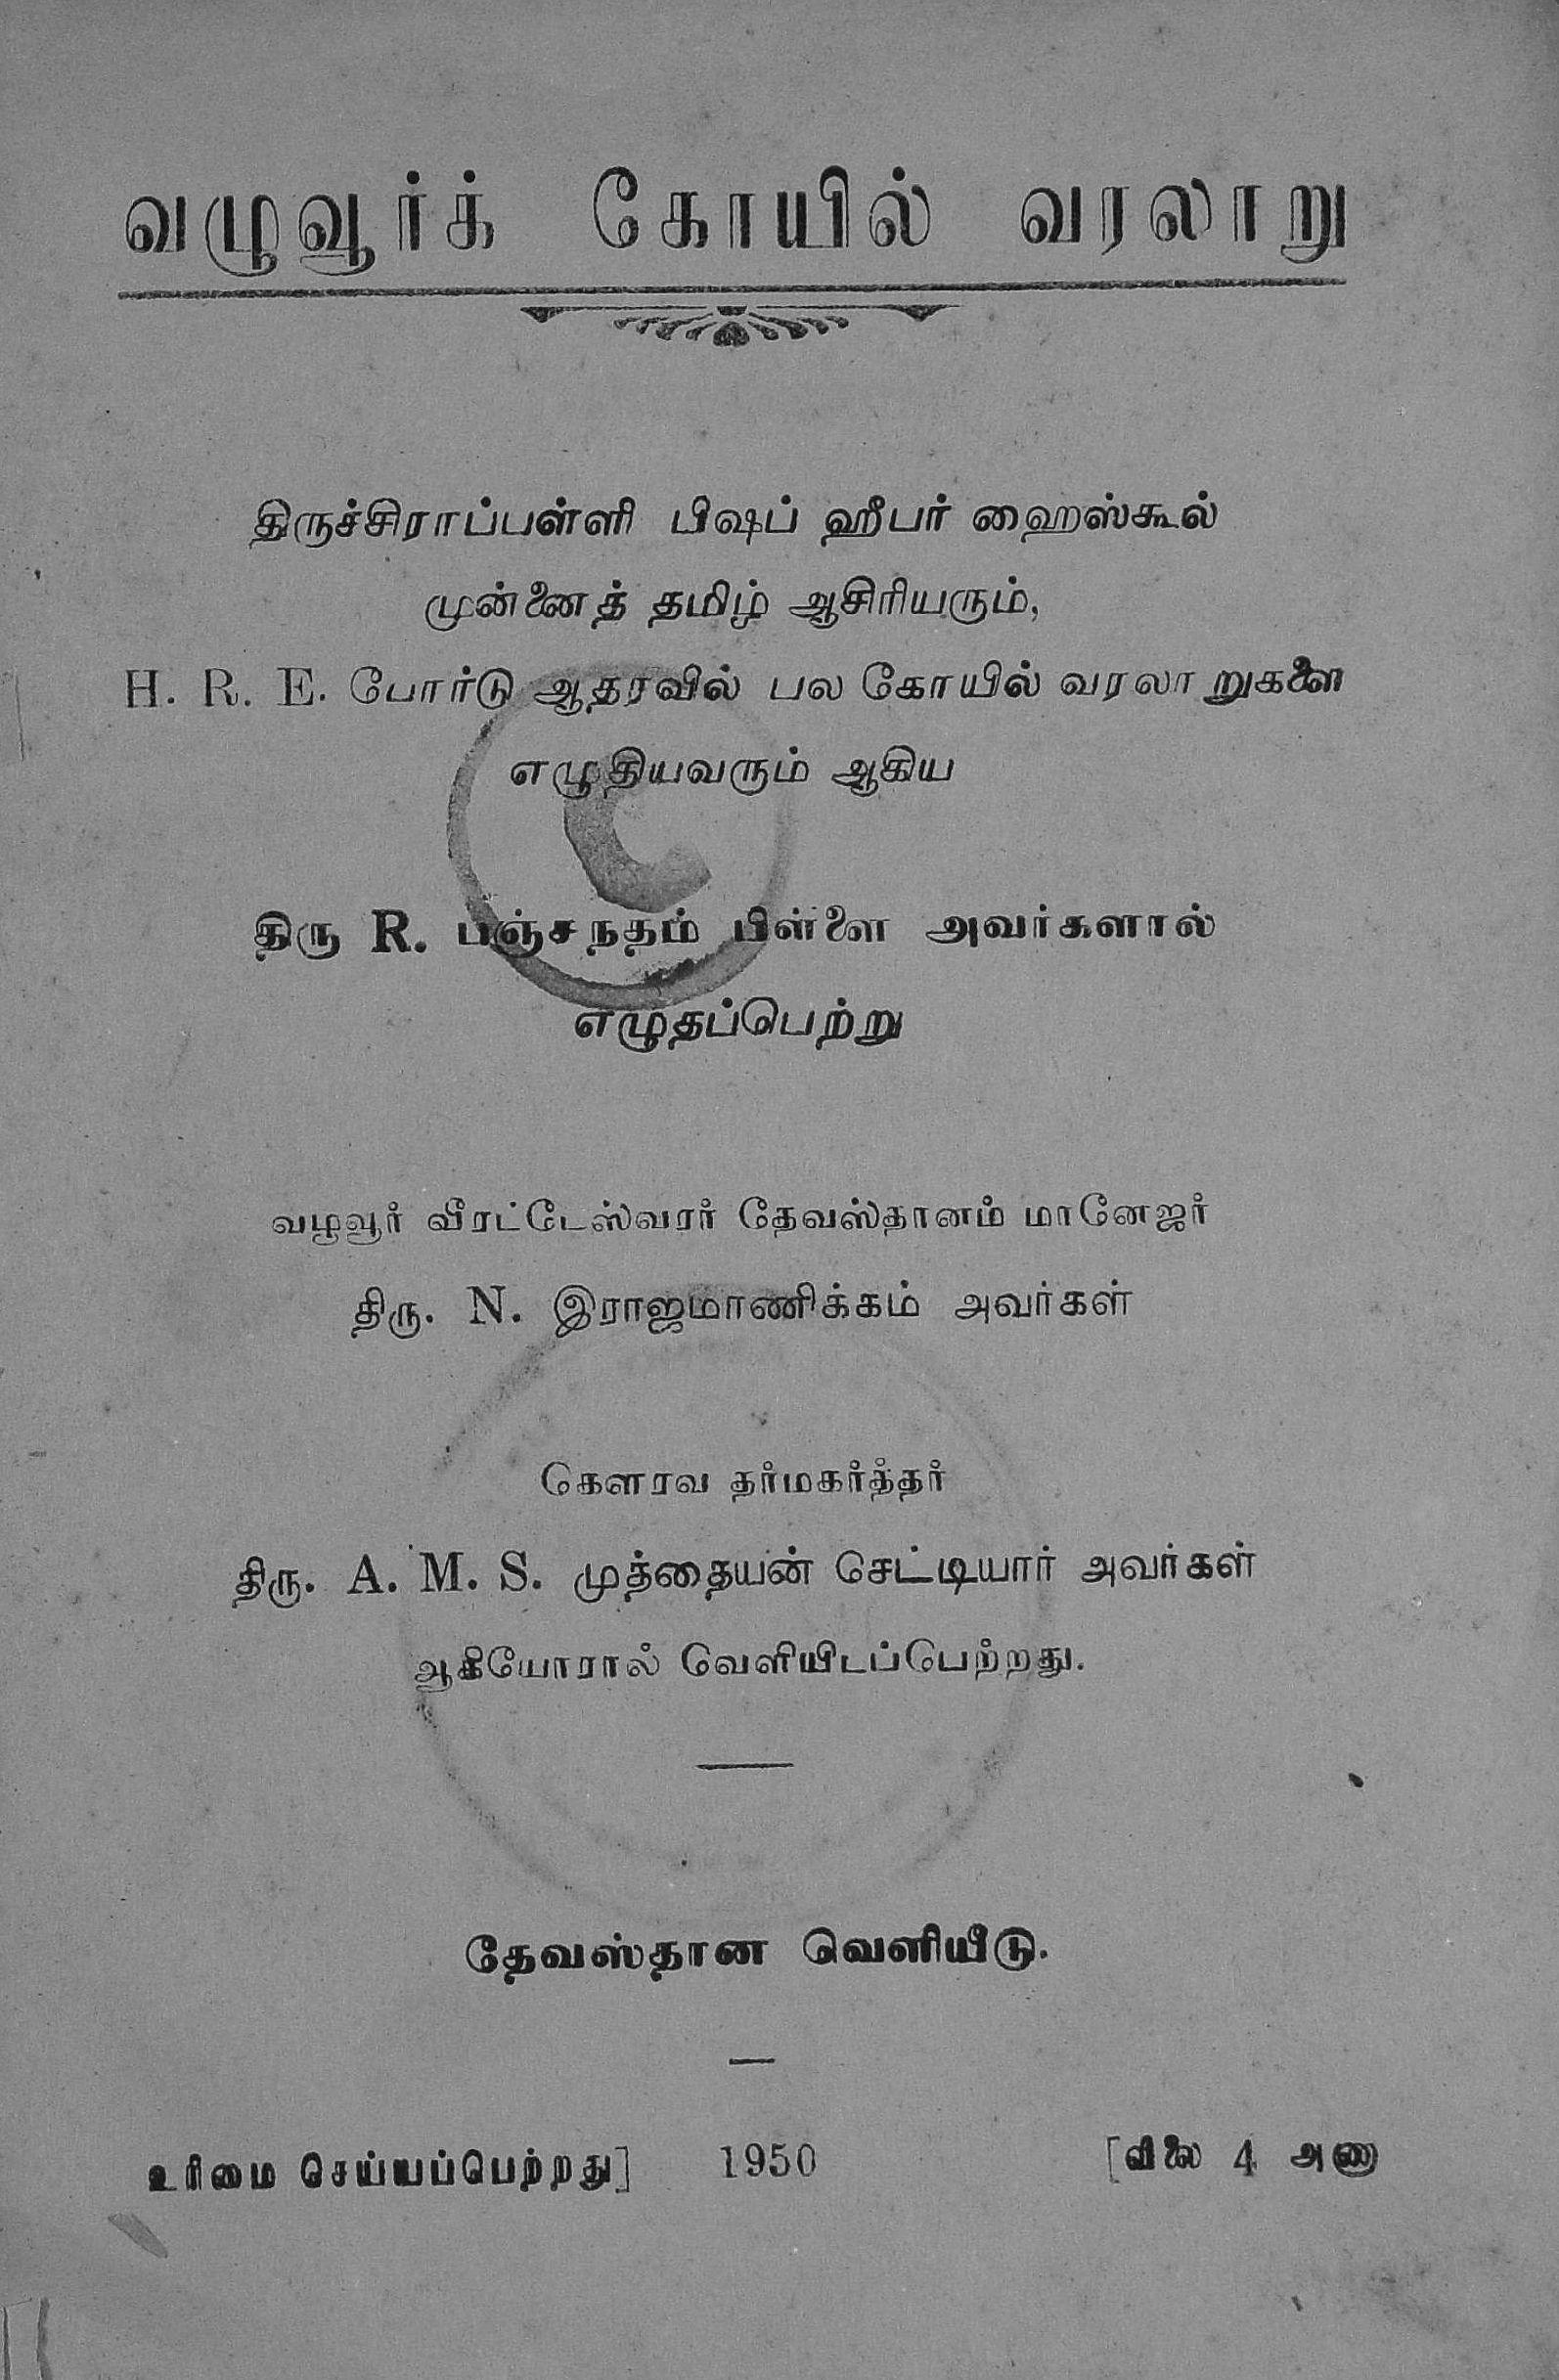 வழுவூர்க் கோயில் வரலாறு
திருச்சிராப்பள்ளி பிஷப் ஹீபர் ஹைஸ்கூல்
முன்னைத் தமிழ் ஆசிரியரும்,
H. R. E. போர்டு ஆதரவில் பல கோயில் வரலாறுகளை
எழுதியவரும் ஆகிய
C
திரு R. பஞ்சநதம் பிள்ளை அவர்களால்
எழுதப்பெற்று
வழுவூர் வீரட்டேஸ்வரர் தேவஸ்தானம் மானேஜர்
திரு. N. இராஜமாணிக்கம் அவர்கள்
கௌரவ தர்மகர்த்தர்
திரு. A. M. S. முத்தையன் செட்டியார் அவர்கள்
ஆகியோரால் வெளியிடப்பெற்றது.
தேவஸ்தான வெளியீடு.
உரிமை செய்யப்பெற்றது] 1950 [விலை 4 அணா